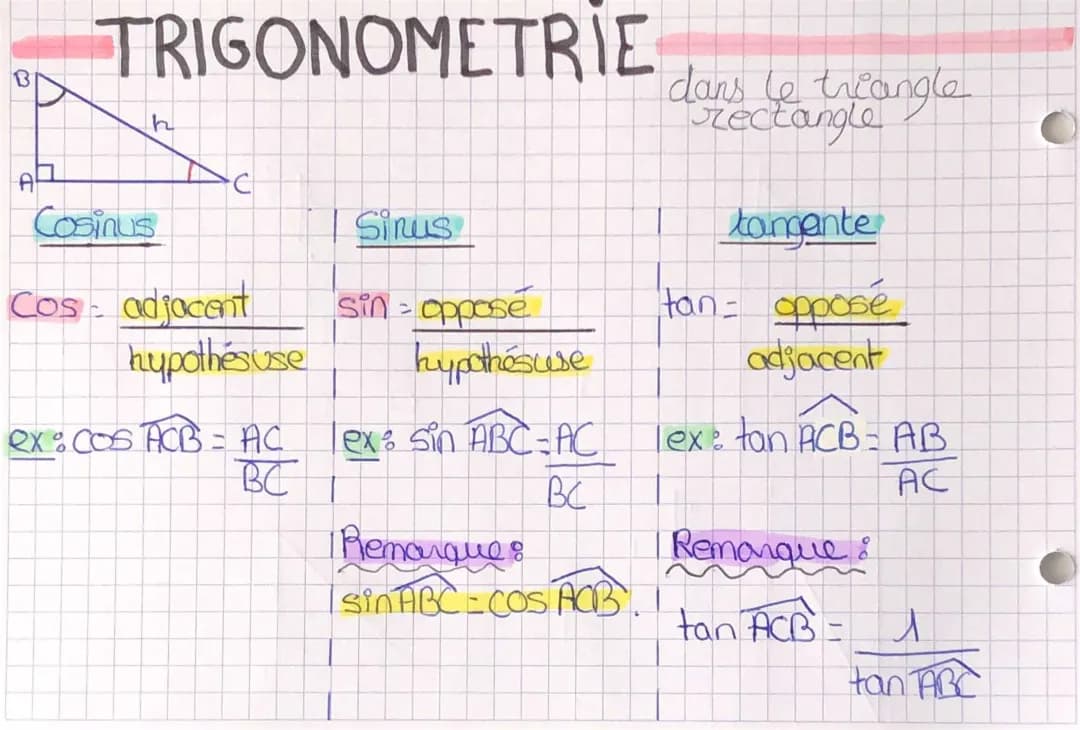 TRIGONOMETRIE
dans le triangle
rectangle
B
h
A
C
Cosinus
Cos = adjacent
hypothésuse
ex: cos ACB = AC
BC
Sinus
sin = opposé
hypothésuse
ex: sin ABC = AC
BC
Remarque:
sin ABC = cos ACB.
tangente
tan = opposé
adjacent
ex: tan ACB = AB
AC
Remarque:
tan ACB = 1
tan ABC